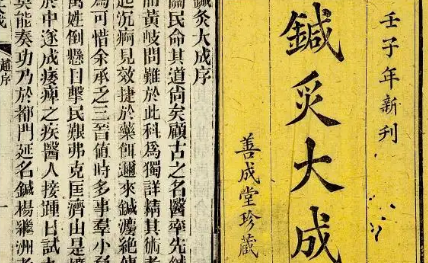 壬子年新刊
鍼灸大成
善成堂珍藏
鍼灸大成序
關民命其道尚矣顧古之名醫率先鍼
而黃岐問難於此科為獨詳精其術者
起沉痾見效捷於藥餌邇來鍼灸絶傳
為可惜余承乏三晉值時多事羣小
萬姓倒懸目擊民艱弗克匡濟由是
於中遂成痿痺之疾醫人接踵日試
莫能奏功乃於都門延名鍼楊繼洲者
趙序